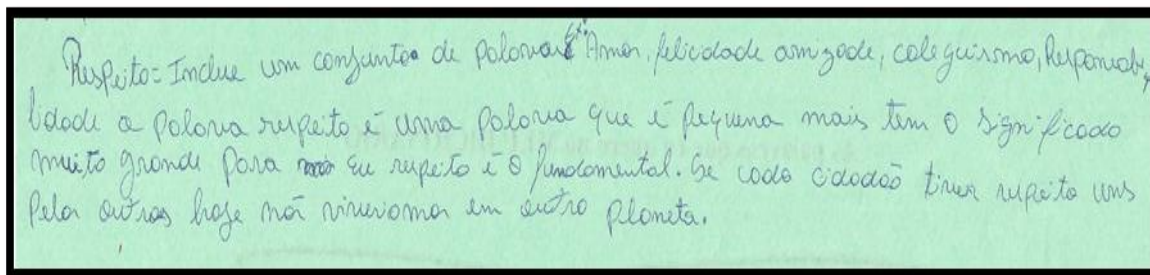 Respeito = Inclue um conjunto de palavras Amor, felicidade amizade, coleguismo, Responsabi-
lidade a palavra respeito é uma palavra que é pequena mais tem o significado
muito grande para Eu respeito é o fundamental. Se cada cidadão tiver respeito uns
pelos outros hoje nós viveriamos em outro planeta.